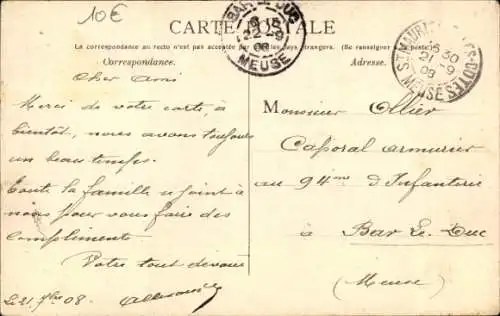 10€
CARTE POSTALE
BAR-LE-DUC
22-9
08
MEUSE
ST MAURICE-S-LES-COTES
6 30
21-9
08
MEUSE
La correspondance au recto n'est pas acceptée par les pays étrangers. (Se renseigner à la poste).
Correspondance.
Adresse.
Cher Ami
Merci de votre carte, à
bientôt, nous avons toujours
un beau temps.
Toute la famille se joint à
nous pour vous faire des
compliments
Votre tout dévoué
Le 21 7bre 08.
Monsieur Ollier
Caporal armurier
au 94me d'Infanterie
à Bar Le Duc
(Meuse)